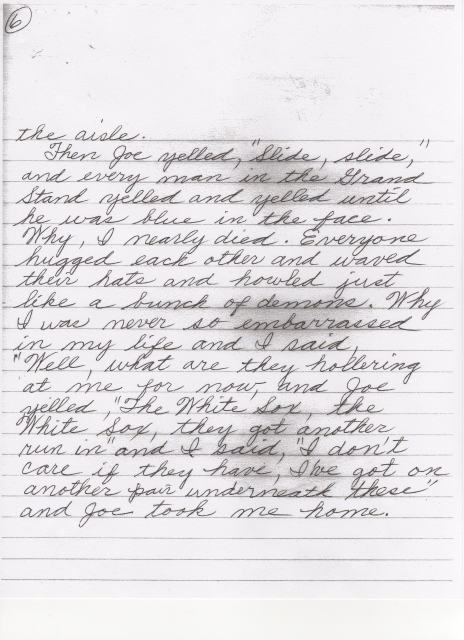 6
the aisle.
Then Joe yelled, "Slide, slide,"
and every man in the Grand
Stand yelled and yelled until
he was blue in the face.
Why, I nearly died. Everyone
hugged each other and waved
their hats and howled just
like a bunch of demons. Why
I was never so embarrassed
in my life and I said,
"Well, what are they hollering
at me for now, and Joe
yelled, "The White Sox, the
White Sox, they got another
run in" and I said, "I don't
care if they have, I've got on
another pair underneath these"
and Joe took me home.